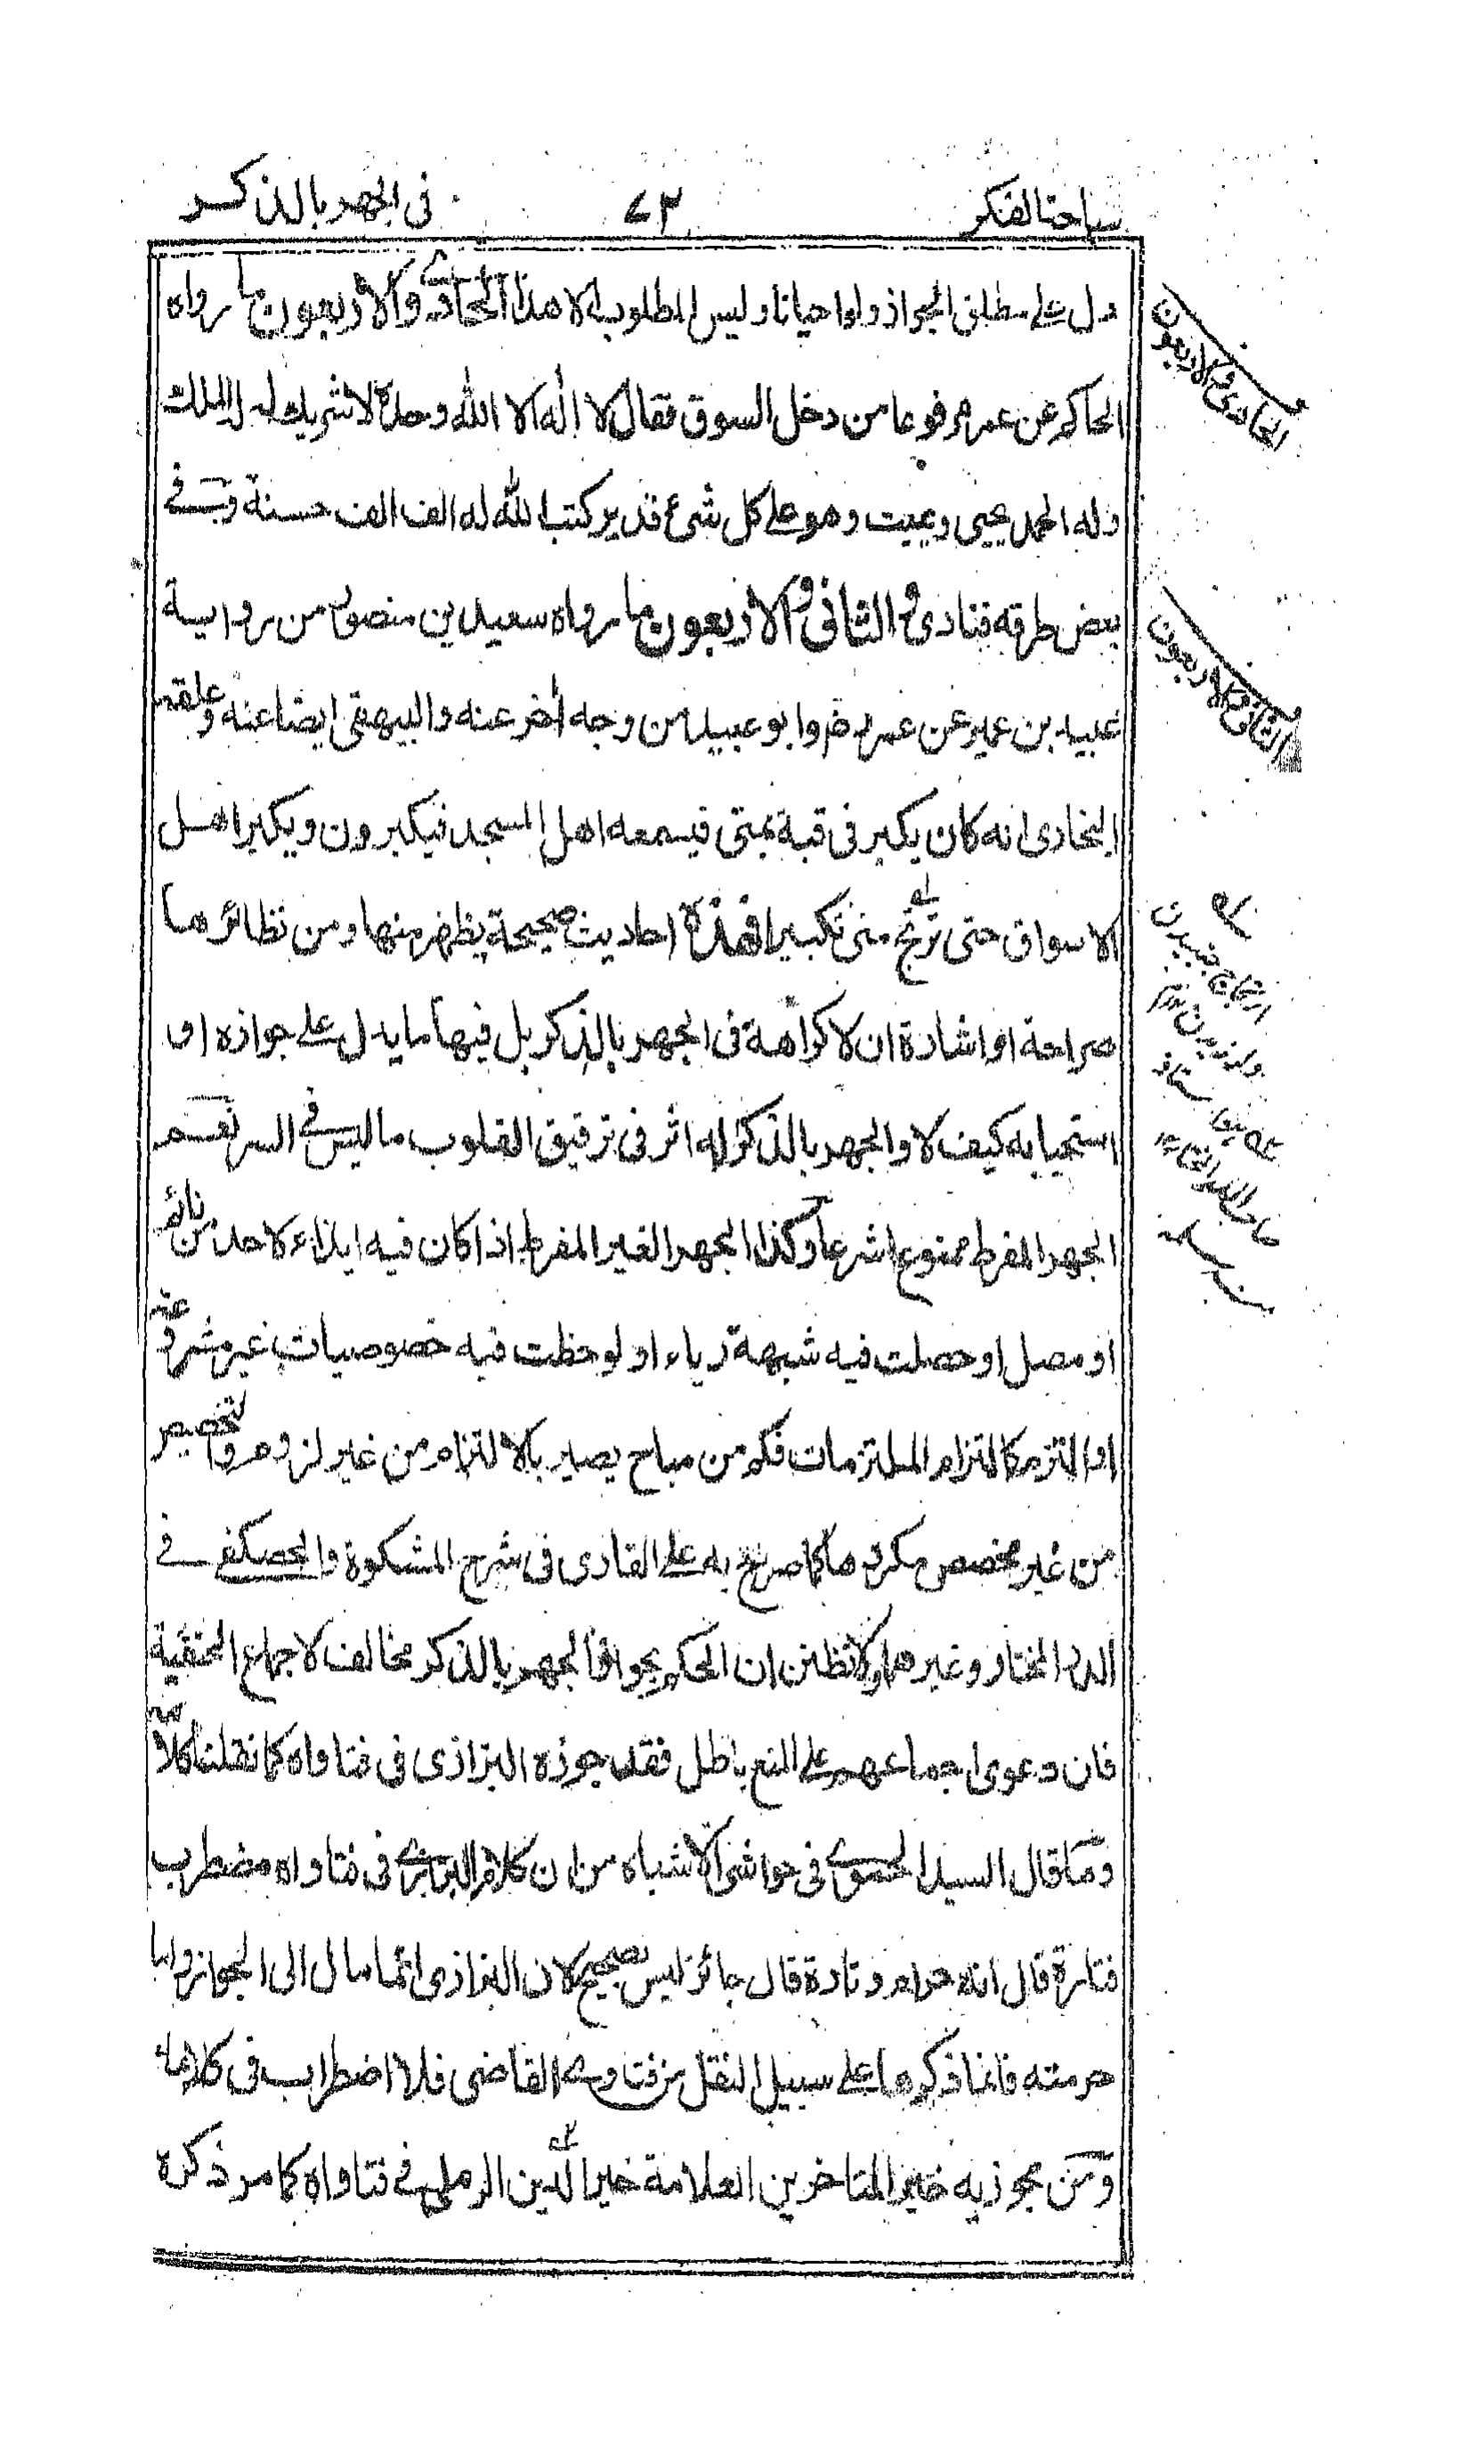 سباحة الفكر ٧٣ في الجهر بالذكر
دل على مطلق الجواز ولو احيانا وليس المطلوب الا هذا الحادي والاربعون ما رواه
الحاكم عن عمر مرفوعا من دخل السوق فقال لا اله الا الله وحده لا شريك له له الملك
وله الحمد يحيى ويميت وهو على كل شئ قدير كتب الله له الف الف حسنة وفي
بعض طرقه فنادى والثاني والاربعون ما رواه سعيد بن منصور من رواية
عبيد بن عمير عن عمر رض وابو عبيد من وجه اخر عنه والبيهقي ايضا عنه وعلقه
البخاري انه كان يكبر في قبة بمنى فيسمعه اهل المسجد فيكبرون ويكبر اهل
الاسواق حتى ترتج منى تكبيرا فهذه احاديث صحيحة يظهر منها ومن نظائرها
صراحة او اشارة ان لا كراهة في الجهر بالذكر بل فيها ما يدل على جوازه او
استحبابه كيف لا والجهر بالذكر له اثر في ترقيق القلوب ما ليس في السر نعم
الجهر المفرط ممنوع شرعا وكذا الجهر الغير المفرط اذا كان فيه ايذاء لاحد من نائم
او مصل او حصلت فيه شبهة رياء او لوحظت فيه خصوصيات غير مشروعة
او التزم كالتزام الملتزمات فكم من مباح يصير بالالتزام من غير لزوم والتخصيص
من غير مخصص مكروها كما صرح به على القاري في شرح المشكوة والحصكفي في
الدر المختار وغيرهما ولا تظنن ان الحكم بجواز الجهر بالذكر مخالف لاجماع الحنفية
فان دعوى اجماعهم على المنع باطل فقد جوزه البزازي في فتاواه كما نقلنا كلامه
وما قال السيد الحموي في حواشي الاشباه من ان كلام البزازي في فتاواه مضطرب
فتارة قال انه حرام وتارة قال جائز ليس بصحيح لان البزازي انما مال الى الجواز واما
حرمته فانما ذكرها على سبيل النقل من فتاوى القاضي فلا اضطراب في كلامه
وممن يجوز به خير المتاخرين العلامة خير الدين الرملي في فتاواه كما مر ذكره
الحادي والاربعون
الثاني والاربعون
له
ارتجاج جنبيدن
ولرزيدن